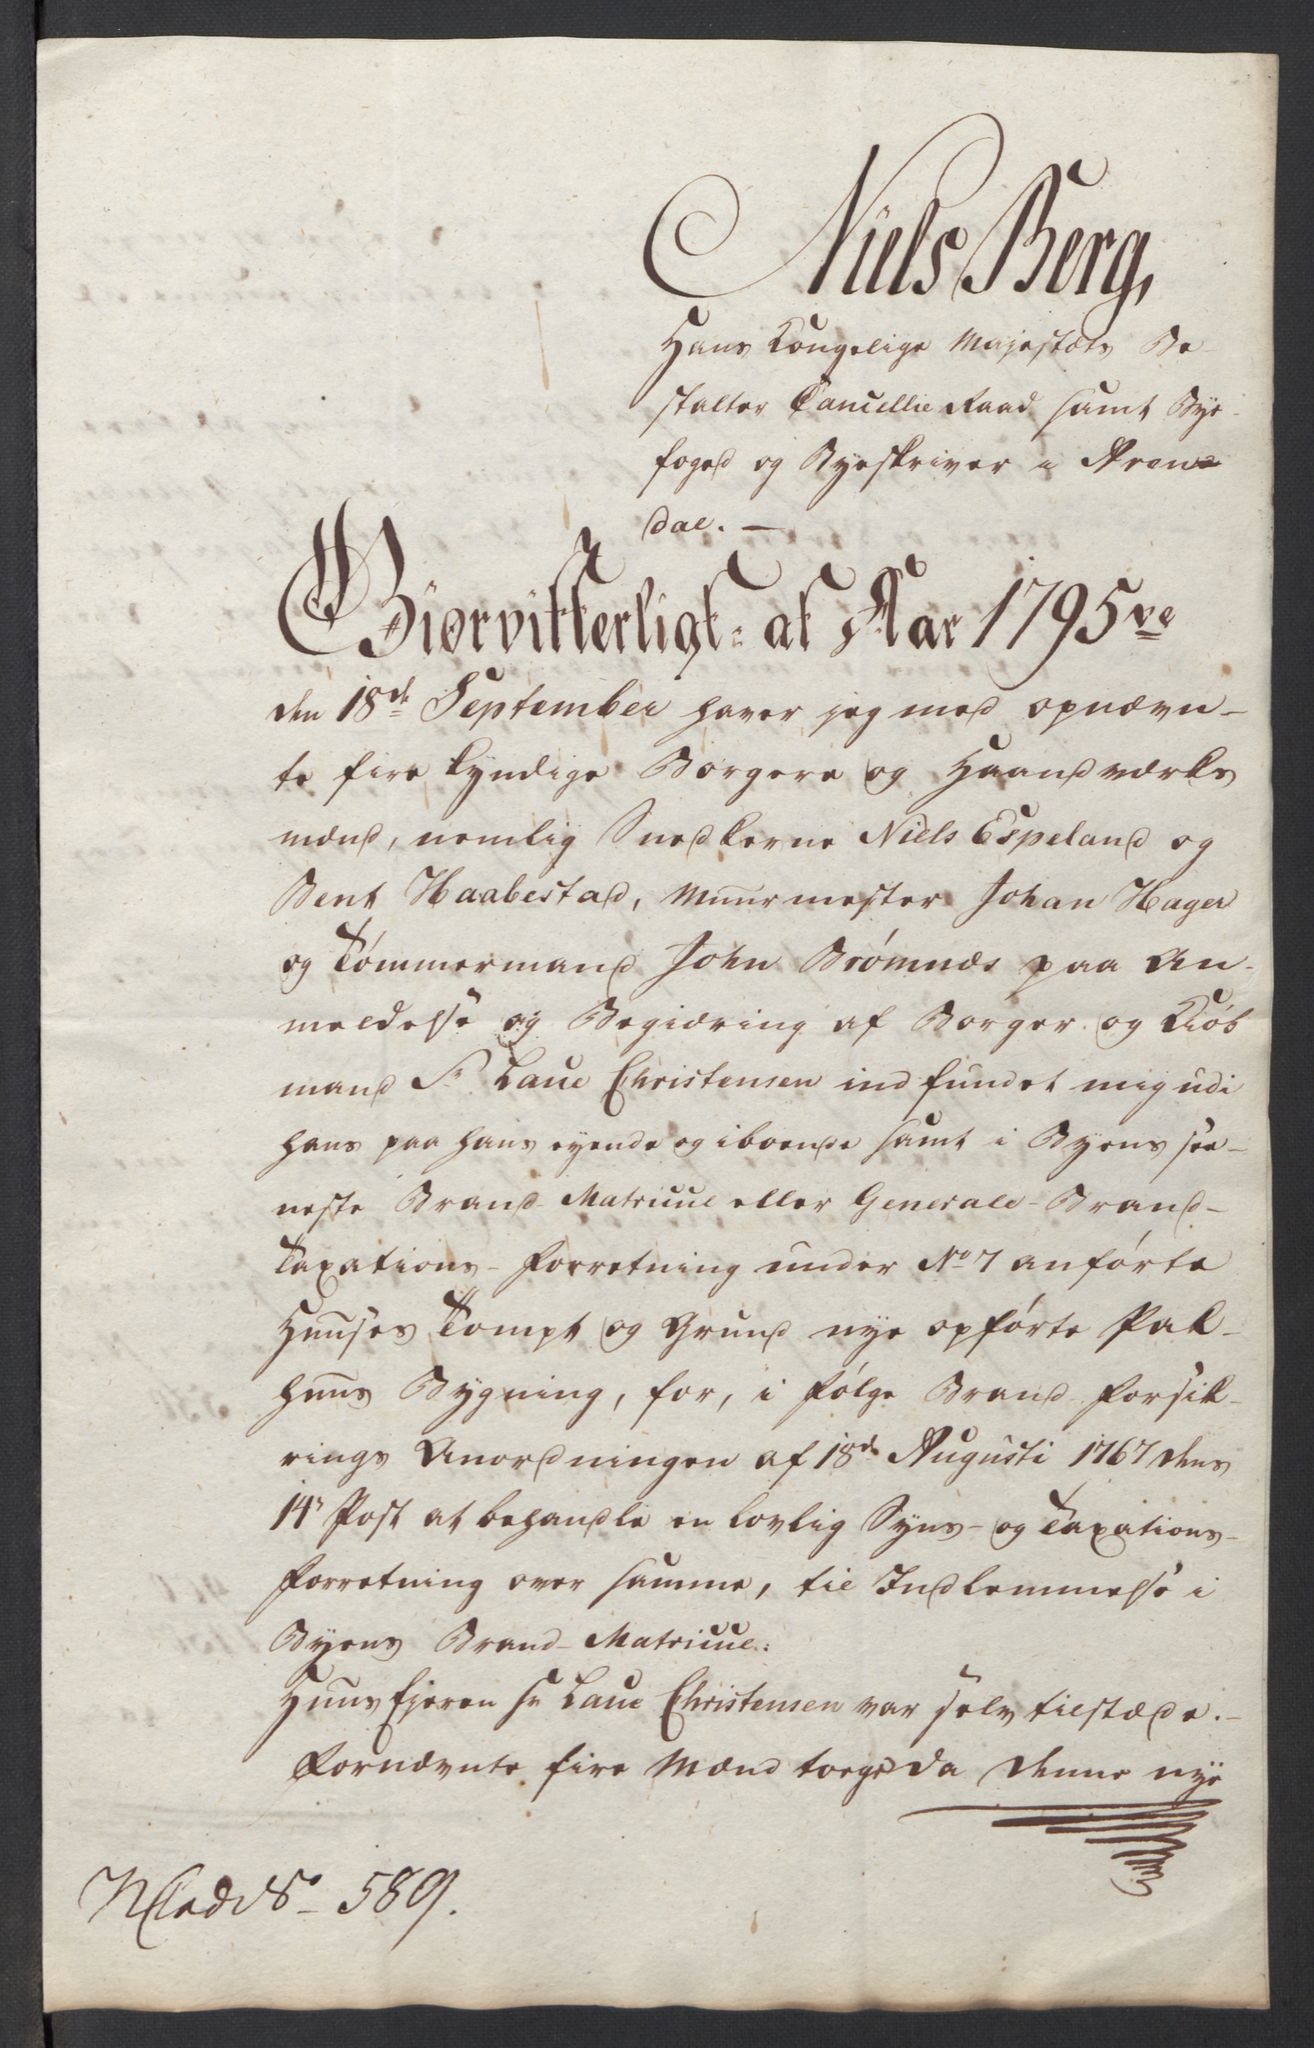 Niels Berg,
Hans Kongelige Majestæts Be-
stalter Cancellie Raad samt Bye-
foged og Byeskriver i Aren-
dal. —
Giør vitterligt: at Aar 1795ve
den 18de September haver jeg med opnævn-
te fire kyndige Borgere og Haandværks
mænd, nemlig Snedkerne Niels Espeland og
Bent Haabestad, Muurmester Johan Hager
og Tømmermand John Brømnæs paa An-
meldelse og Begiæring af Borger og Kiøb
mand Sr Laue Christensen indfundet mig udi
hans paa hans eyende og iboende samt i Byens see-
neste Brand-Matricul eller Generale-Brand-
Taxations-Forretning under No 7 anførte
Huuses Tompt og Grund nye opførte Pak-
huus Bygning, for, i følge Brand-Forsik-
rings Anordningen af 18de Augusti 1767 dens
14de Post at behandle en lovlig Syns- og Taxations-
Forretning over samme, til Indlemmelse i
Byens Brand-Matricul:
Huus Ejeren Sr Laue Christensen var selv tilstæde.-
Fornævnte fire Mænd toege da denne nye
No 589.